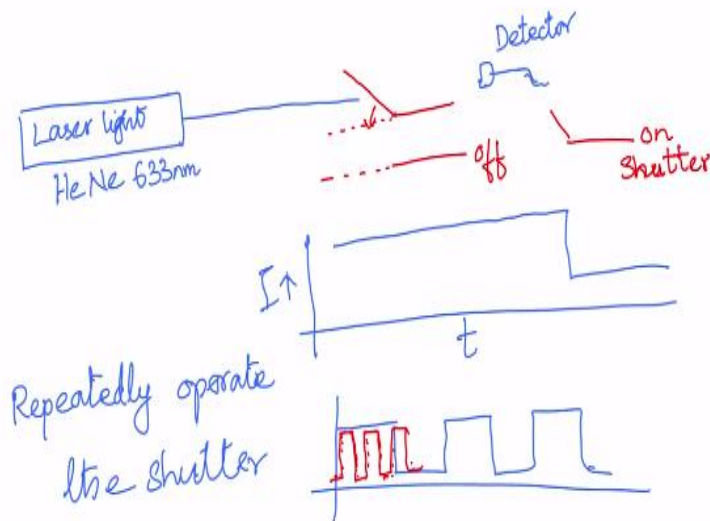 Detector
Laser light
HeNe 633nm
off
on
Shutter
I↑
t
Repeatedly operate
the shutter